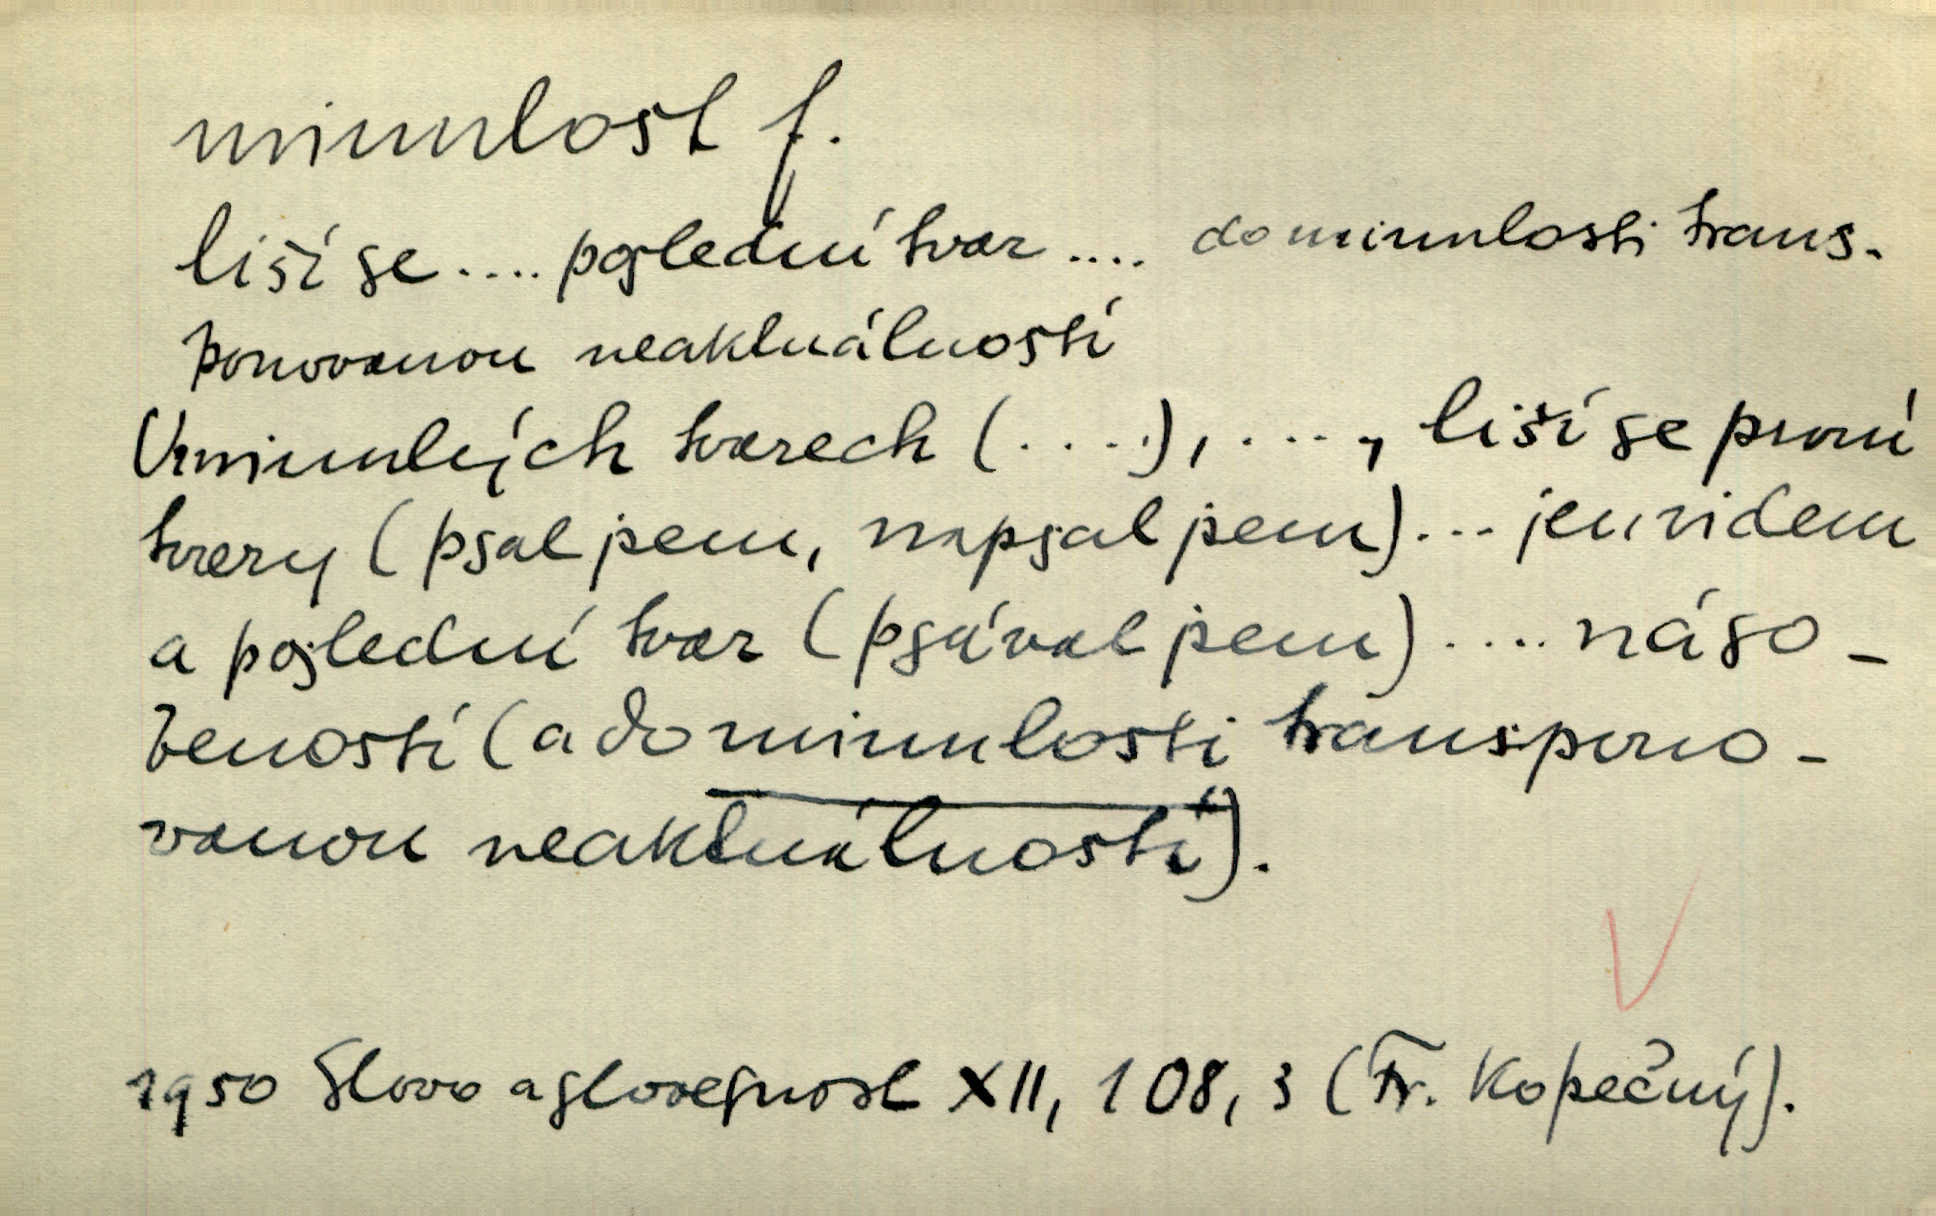 minulost f.
liší se .... poslední tvar .... do minulosti trans-
ponovanou neaktuálností
V minulých tvarech (....), ...., liší se první
tvary (psal jsem, napsal jsem) ... jen videm
a poslední tvar (psával jsem) .... náso-
beností (a do minulosti transpono-
vanou neaktuálností).
1950 Slovo a slovesnost XII, 108, 3 (Fr. Kopečný).